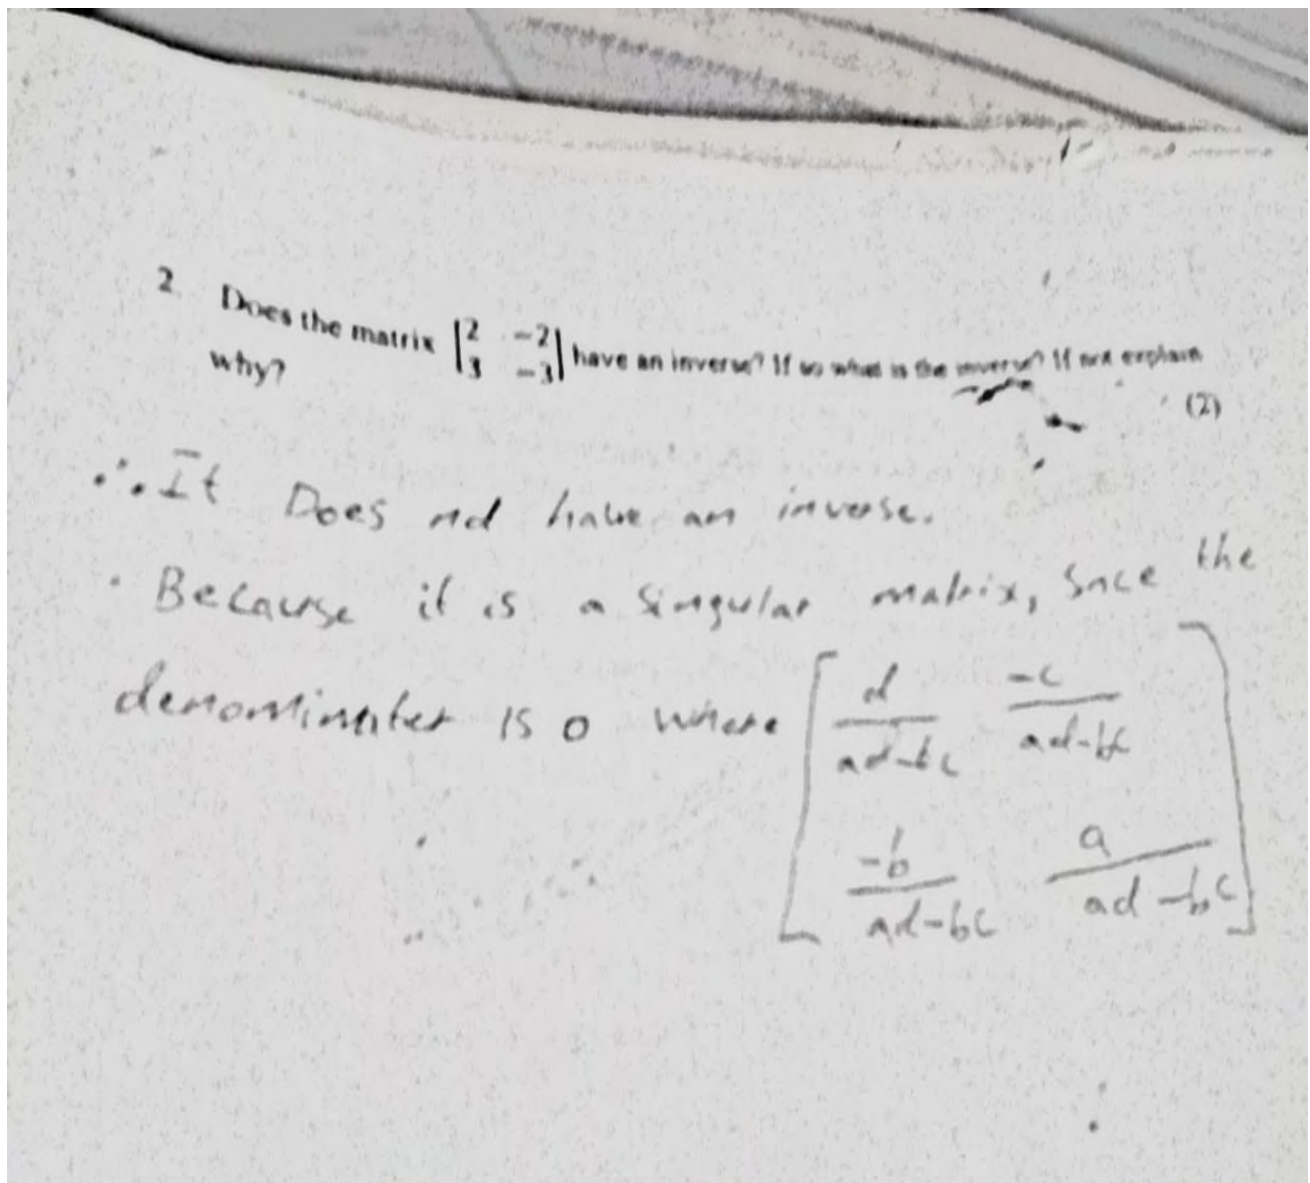 2. Does the matrix |2 -2| have an inverse? If so what is the inverse? If not explain
|3 -3|
why?
(2)
∴ It Does not have an inverse.
· Because it is a singular matrix, Snce the
denominater is 0 where [ d/ad-bc -c/ad-bc
-b/ad-bc a/ad-bc ]